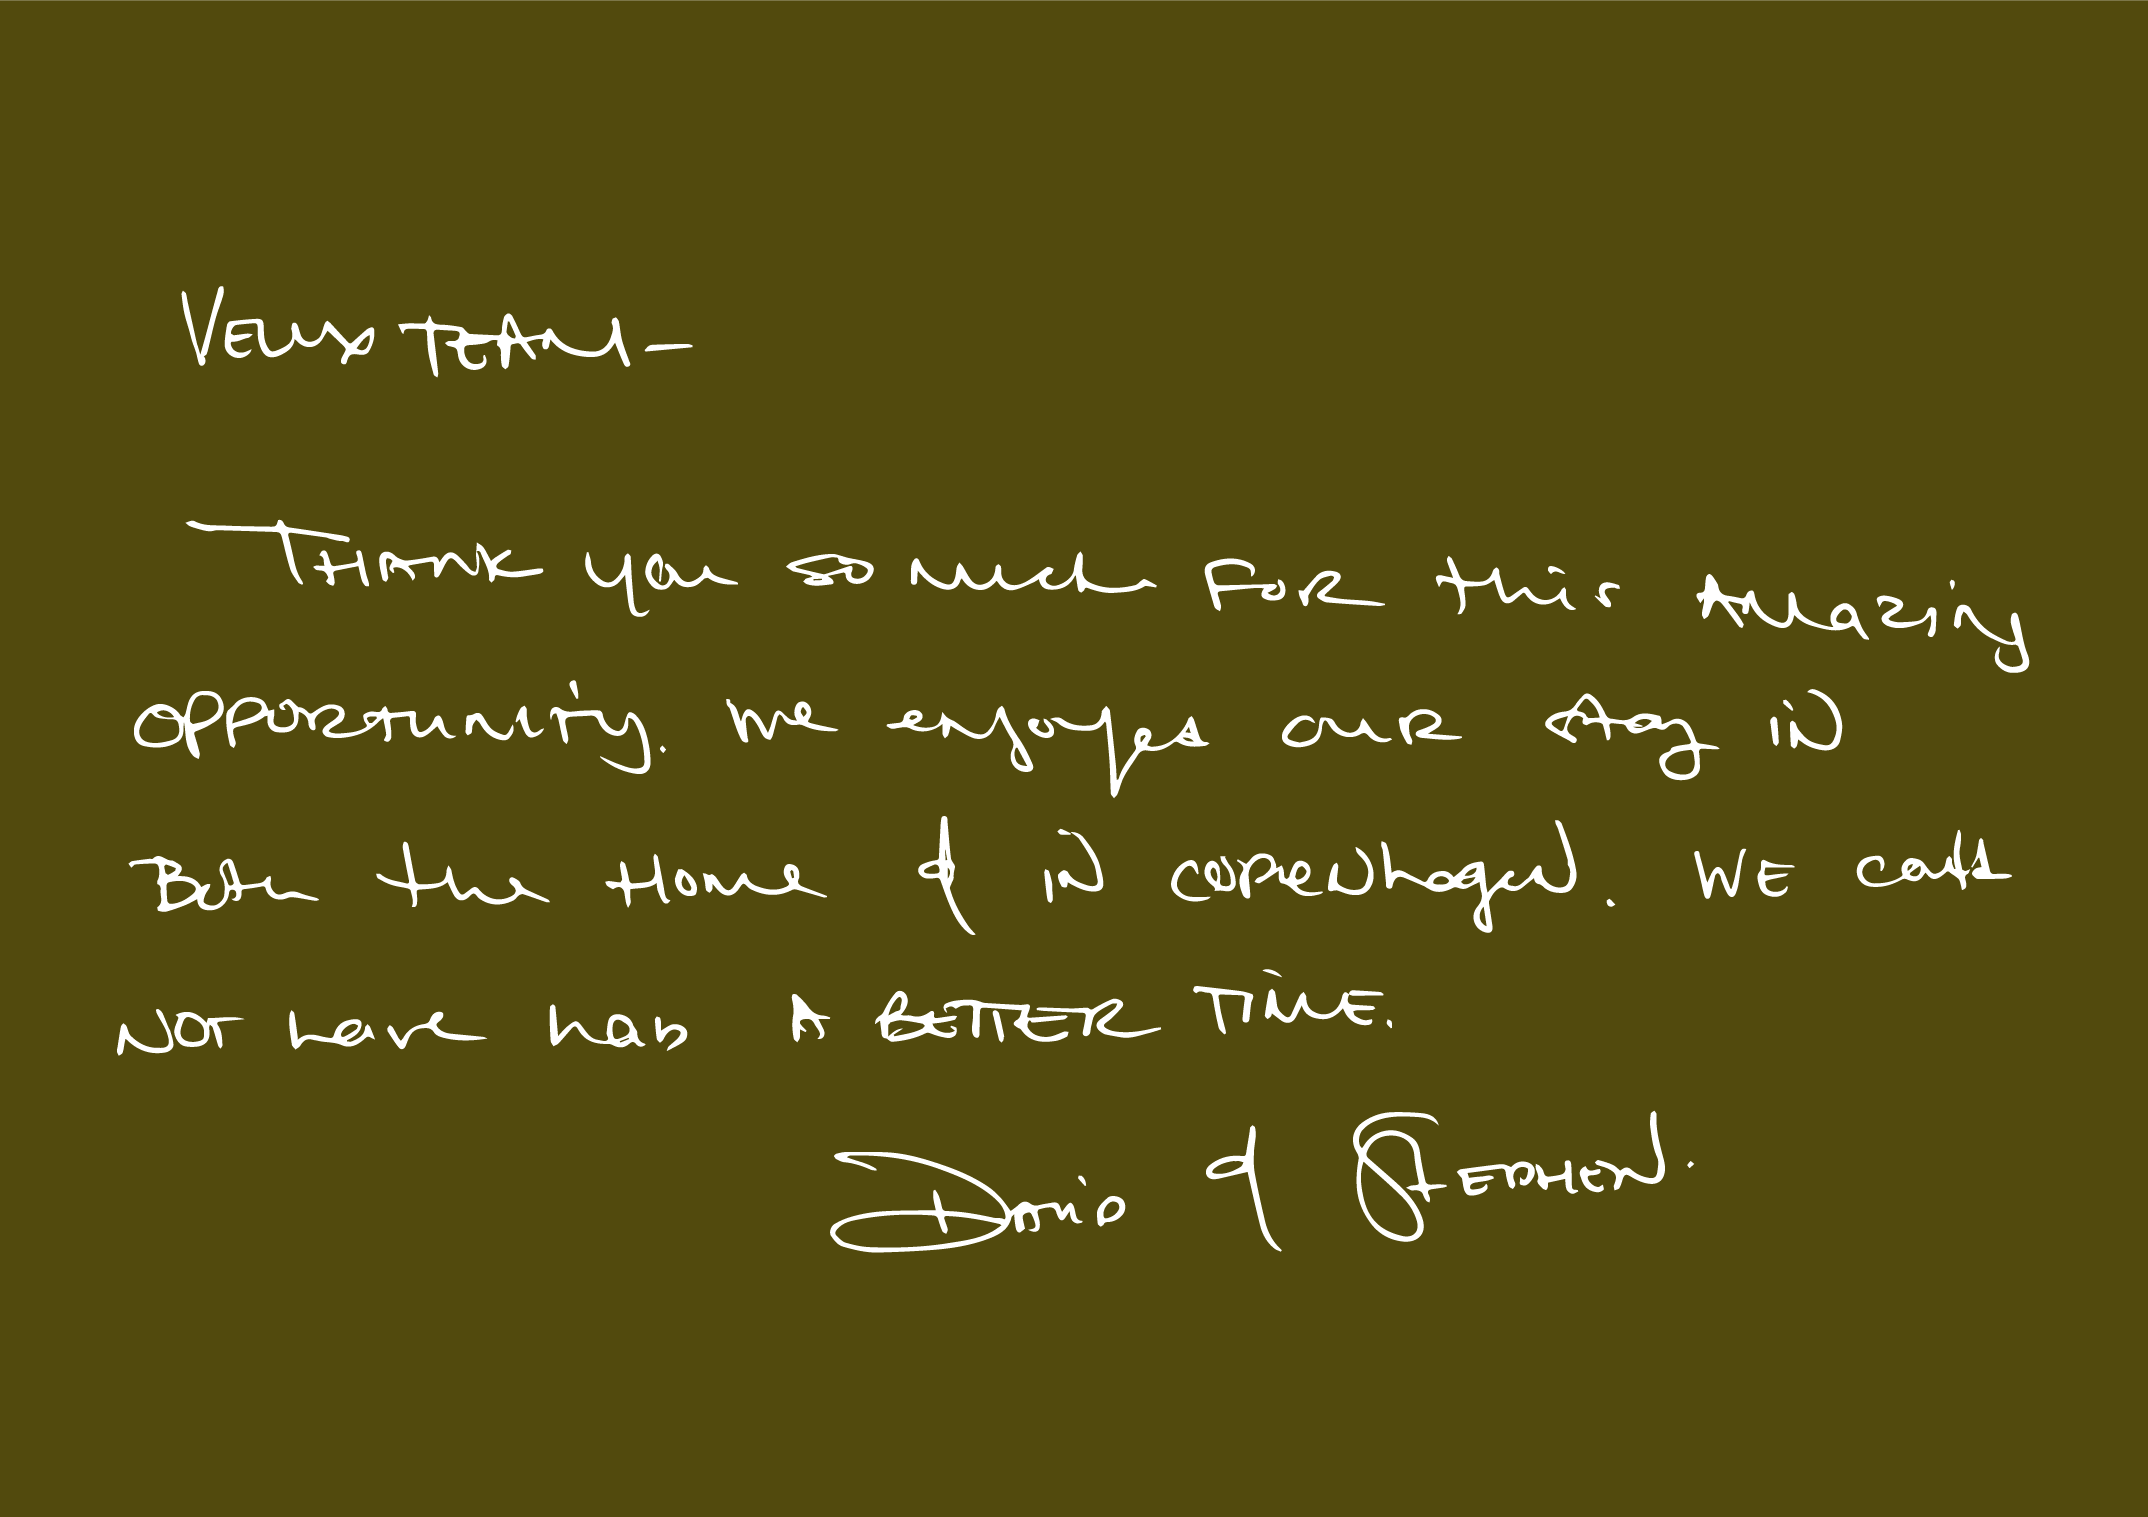 VELUX TEAM –
THANK you so much FOR this Amazing
OPPORTUNITY. We enjoyed OUR stay iN
BOTH the Home & iN COPENhageN. WE could
NOT have haD A BETTER TiME.
DAViD & STEPHEN.